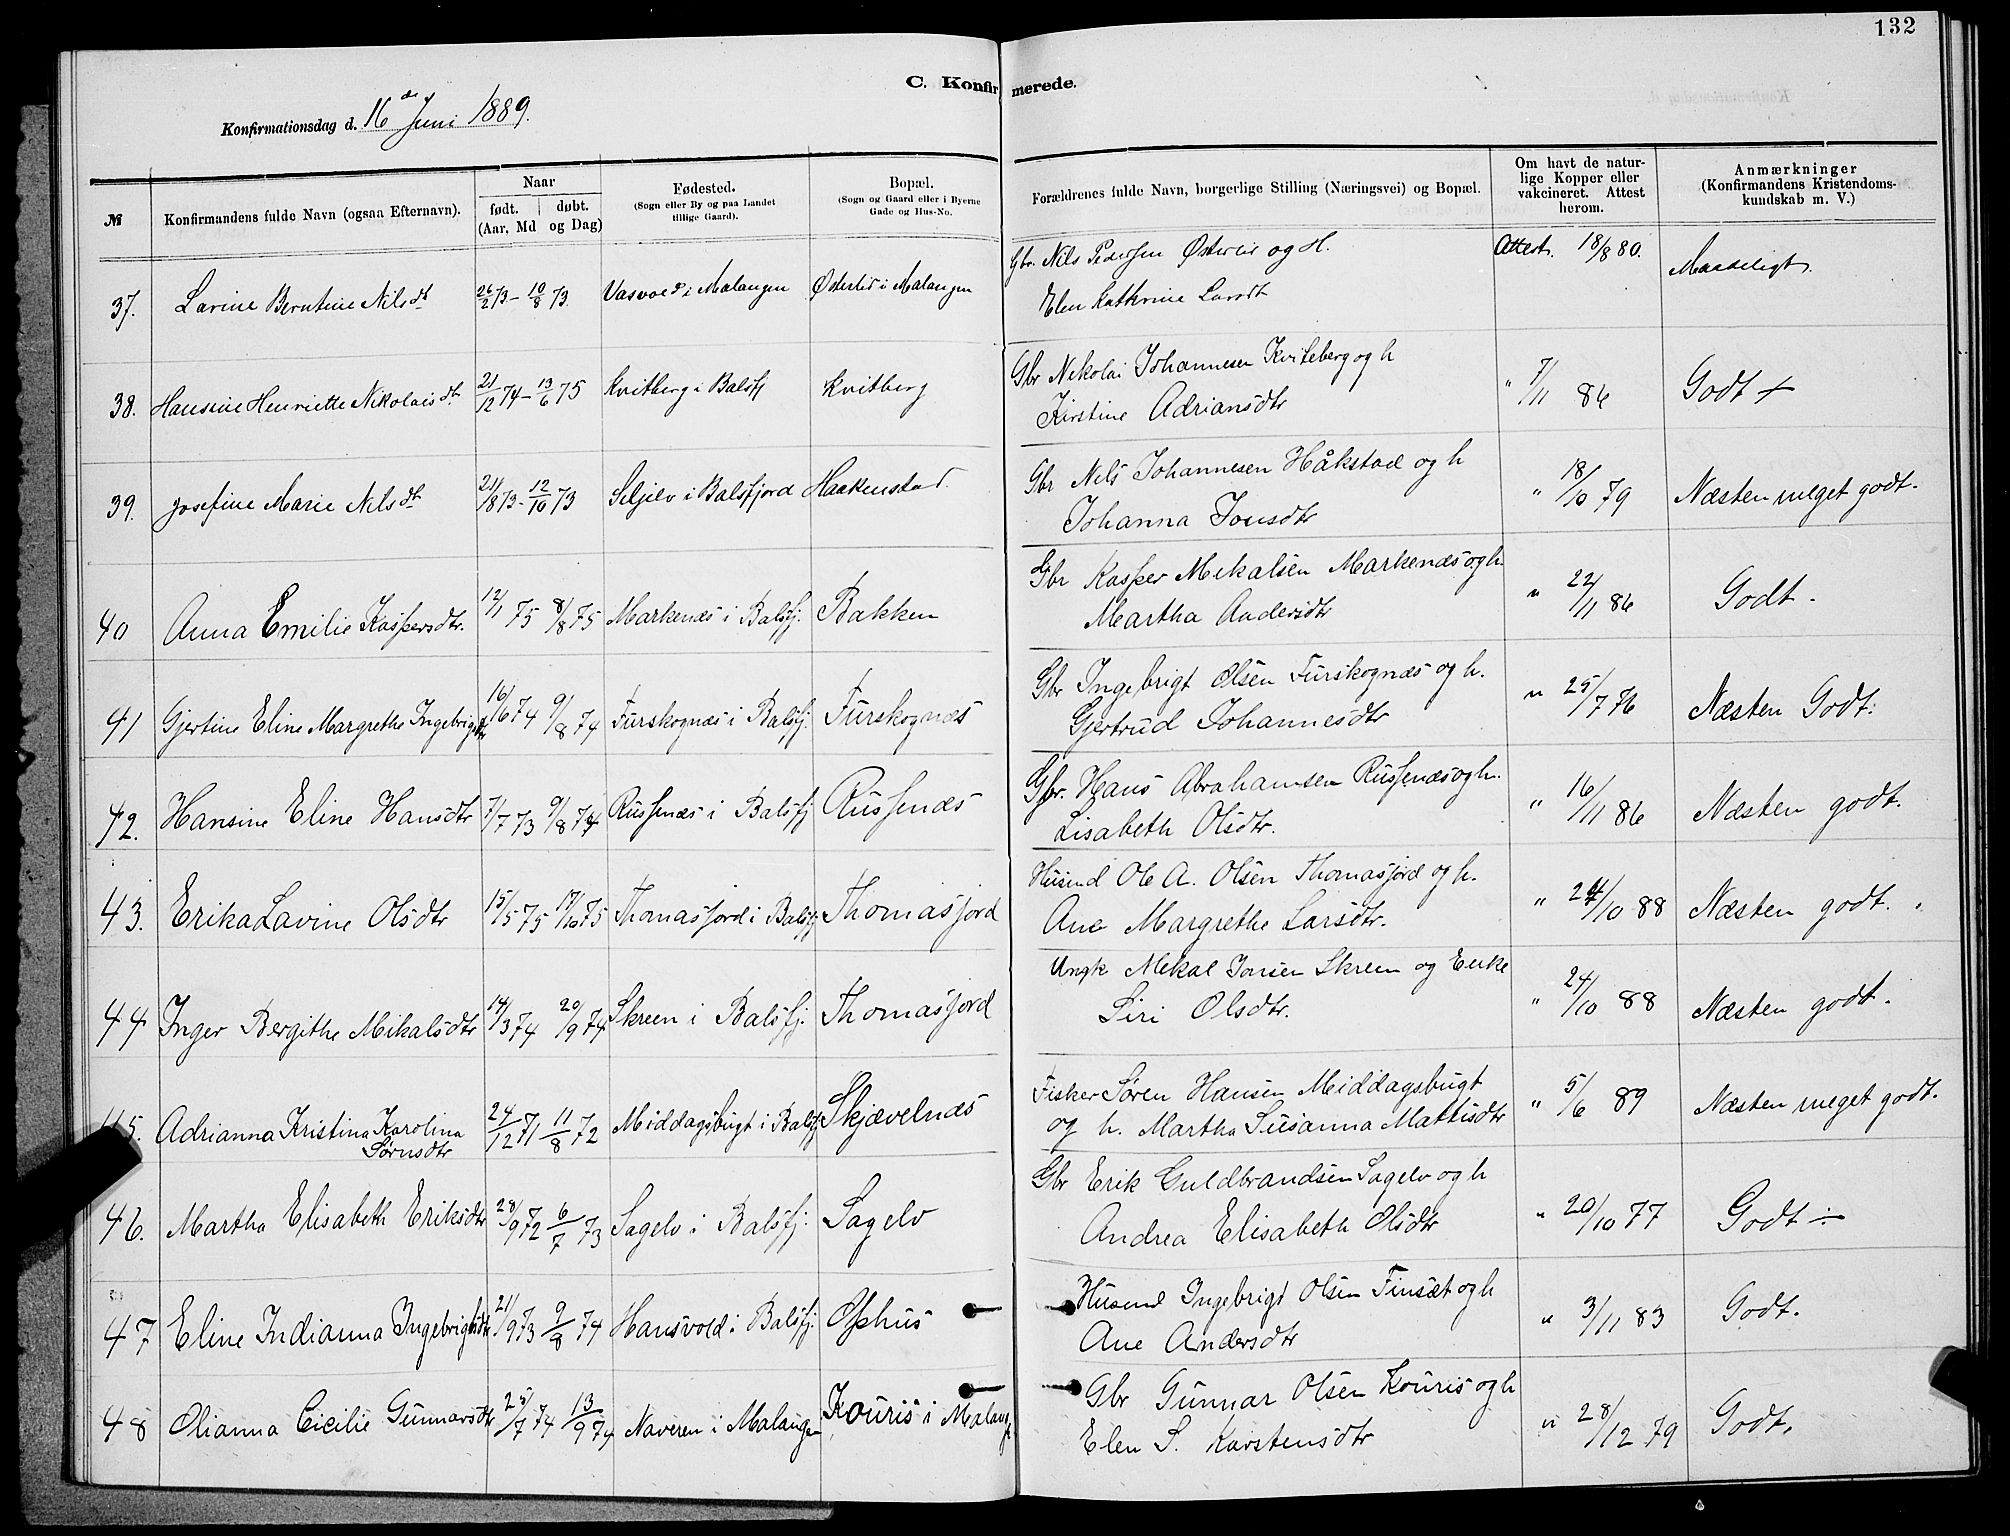 132
C. Konfirmerede.
Konfirmationsdag d. 16de Juni 1889.
№ Konfirmandens fulde Navn (ogsaa Efternavn). Naar født. døbt. (Aar, Md og Dag) Fødested. (Sogn eller By og paa Landet tillige Gaard). Bopæl. (Sogn og Gaard eller i Byerne Gade og Hus-No. Forældrenes fulde Navn, borgerlige Stilling (Næringsvei) og Bopæl. Om havt de naturlige Kopper eller vakcineret. Attest herom. Anmærkninger (Konfirmandens Kristendomskundskab m. V.)
37. Larine Berntine Nilsdt 26/2 73 - 10/8 73. i Malangen Østerlid i Malangen Gbr. Nils Pedersen og H. Attest. 18/8 80. Maadeligt.
Elen Kathrine Larsdt
38. Hansine Henriette Nikolaisdt 21/12 74 - 13/6 75 Kvitberg i Balsfj Kvitberg Gbr Nikolai Johannesen Kviteberg og h " 7/11 86 Godt +
Kirstine Adriansdtr
39. Josefine Marie Nilsdt 21/8 73 - 12/10 73 Seljelv i Balsfjord Haakenstad. Gbr Nils Johannesen Håkstad og h " 18/10 79 Næsten meget godt.
Johanna Jonsdtr
40 Anna Emilie Kaspersdtr. 12/1 75 8/8 75 Markenæs i Balsfj. Bakken Gbr Kasper Mekalsen Markenæs og h. " 22/11 86 Godt.
Martha Andersdtr
41 Gjertine Eline Margrethe Ingebrigtsdtr 16/6 74 9/8 74 Furskognæs i Balsfj. Furskognæs Gbr Ingebrigt Olsen Furskognæs og h. " 25/7 76 Næsten Godt.
Gjertrud Johannesdtr
42. Hansine Eline Hansdtr 7/7 73 9/8 74 Russenæs i Balsfj Russenæs Gbr. Hans Abrahamsen Russenæs og h. " 16/11 86 Næsten godt.
Lisabeth Olsdtr.
43. Erika Lavine Olsdtr 15/5 75 17/10 75 Thomasjord i Balsfj Thomasjord Husmd Ole A. Olsen Thomasjord og h. " 24/10 88 Næsten godt.
Ane Margrethe Larsdtr.
44 Inger Bergithe Mikalsdtr 14/3 74 20/9 74 Skreen i Balsfj. Thomasjord Ungk Mekal Jonsen Skreen og Enke " 24/10 88 Næsten godt.
Siri Olsdtr.
45. Adrianna Kristina Karolina Sørnsdtr 24/12 71 11/8 72 Middagsbugt i Balsfj Skjævelnæs Fisker Søren Hansen Middagsbugt " 5/6 89 Næsten meget godt.
og h. Martha Susanna Mattisdtr
46. Martha Elisabeth Eriksdtr 28/9 72 6/7 73 Sagelv i Balsfj. Sagelv Gbr Erik Guldbrandsen Sagelv og h " 20/10 77 Godt ÷
Andrea Elisabeth Olsdtr
47 Eline Indianna Ingebrigtsdtr 21/9 73 9/8 74 Hansvold i Balsfj. Ophus Husmd Ingebrigt Olsen Finsæt og h " 3/11 83 Godt.
Ane Andersdtr
48 Olianna Cicilie Gunnarsdtr 25/7 74 13/9 74 Naveren i Malangen Kouris i Malang. Gbr Gunnar Olsen Kouris og h " 28/12 79 Godt.
Elen S. Karstensdtr